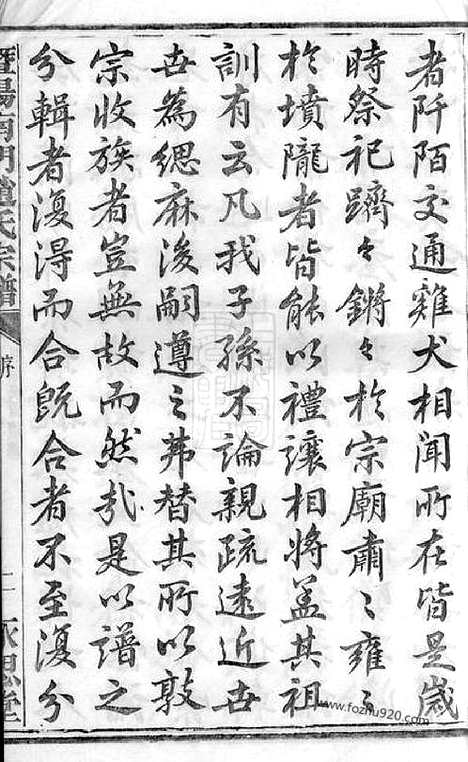 者阡陌交通雞犬相聞所在皆是歲
時祭祀躋々鏘々於宗廟肅〻雍〻
於墳隴者皆能以禮讓相將盖其祖
訓有云凡我子孫不論親疏遠近世
世為緦麻後嗣遵之弗替其所以敦
宗收族者豈無故而然哉是以譜之
分輯者復得而合既合者不至復分
暨陽南門趙氏宗譜
序
二
永思堂
www.fozhu920.com